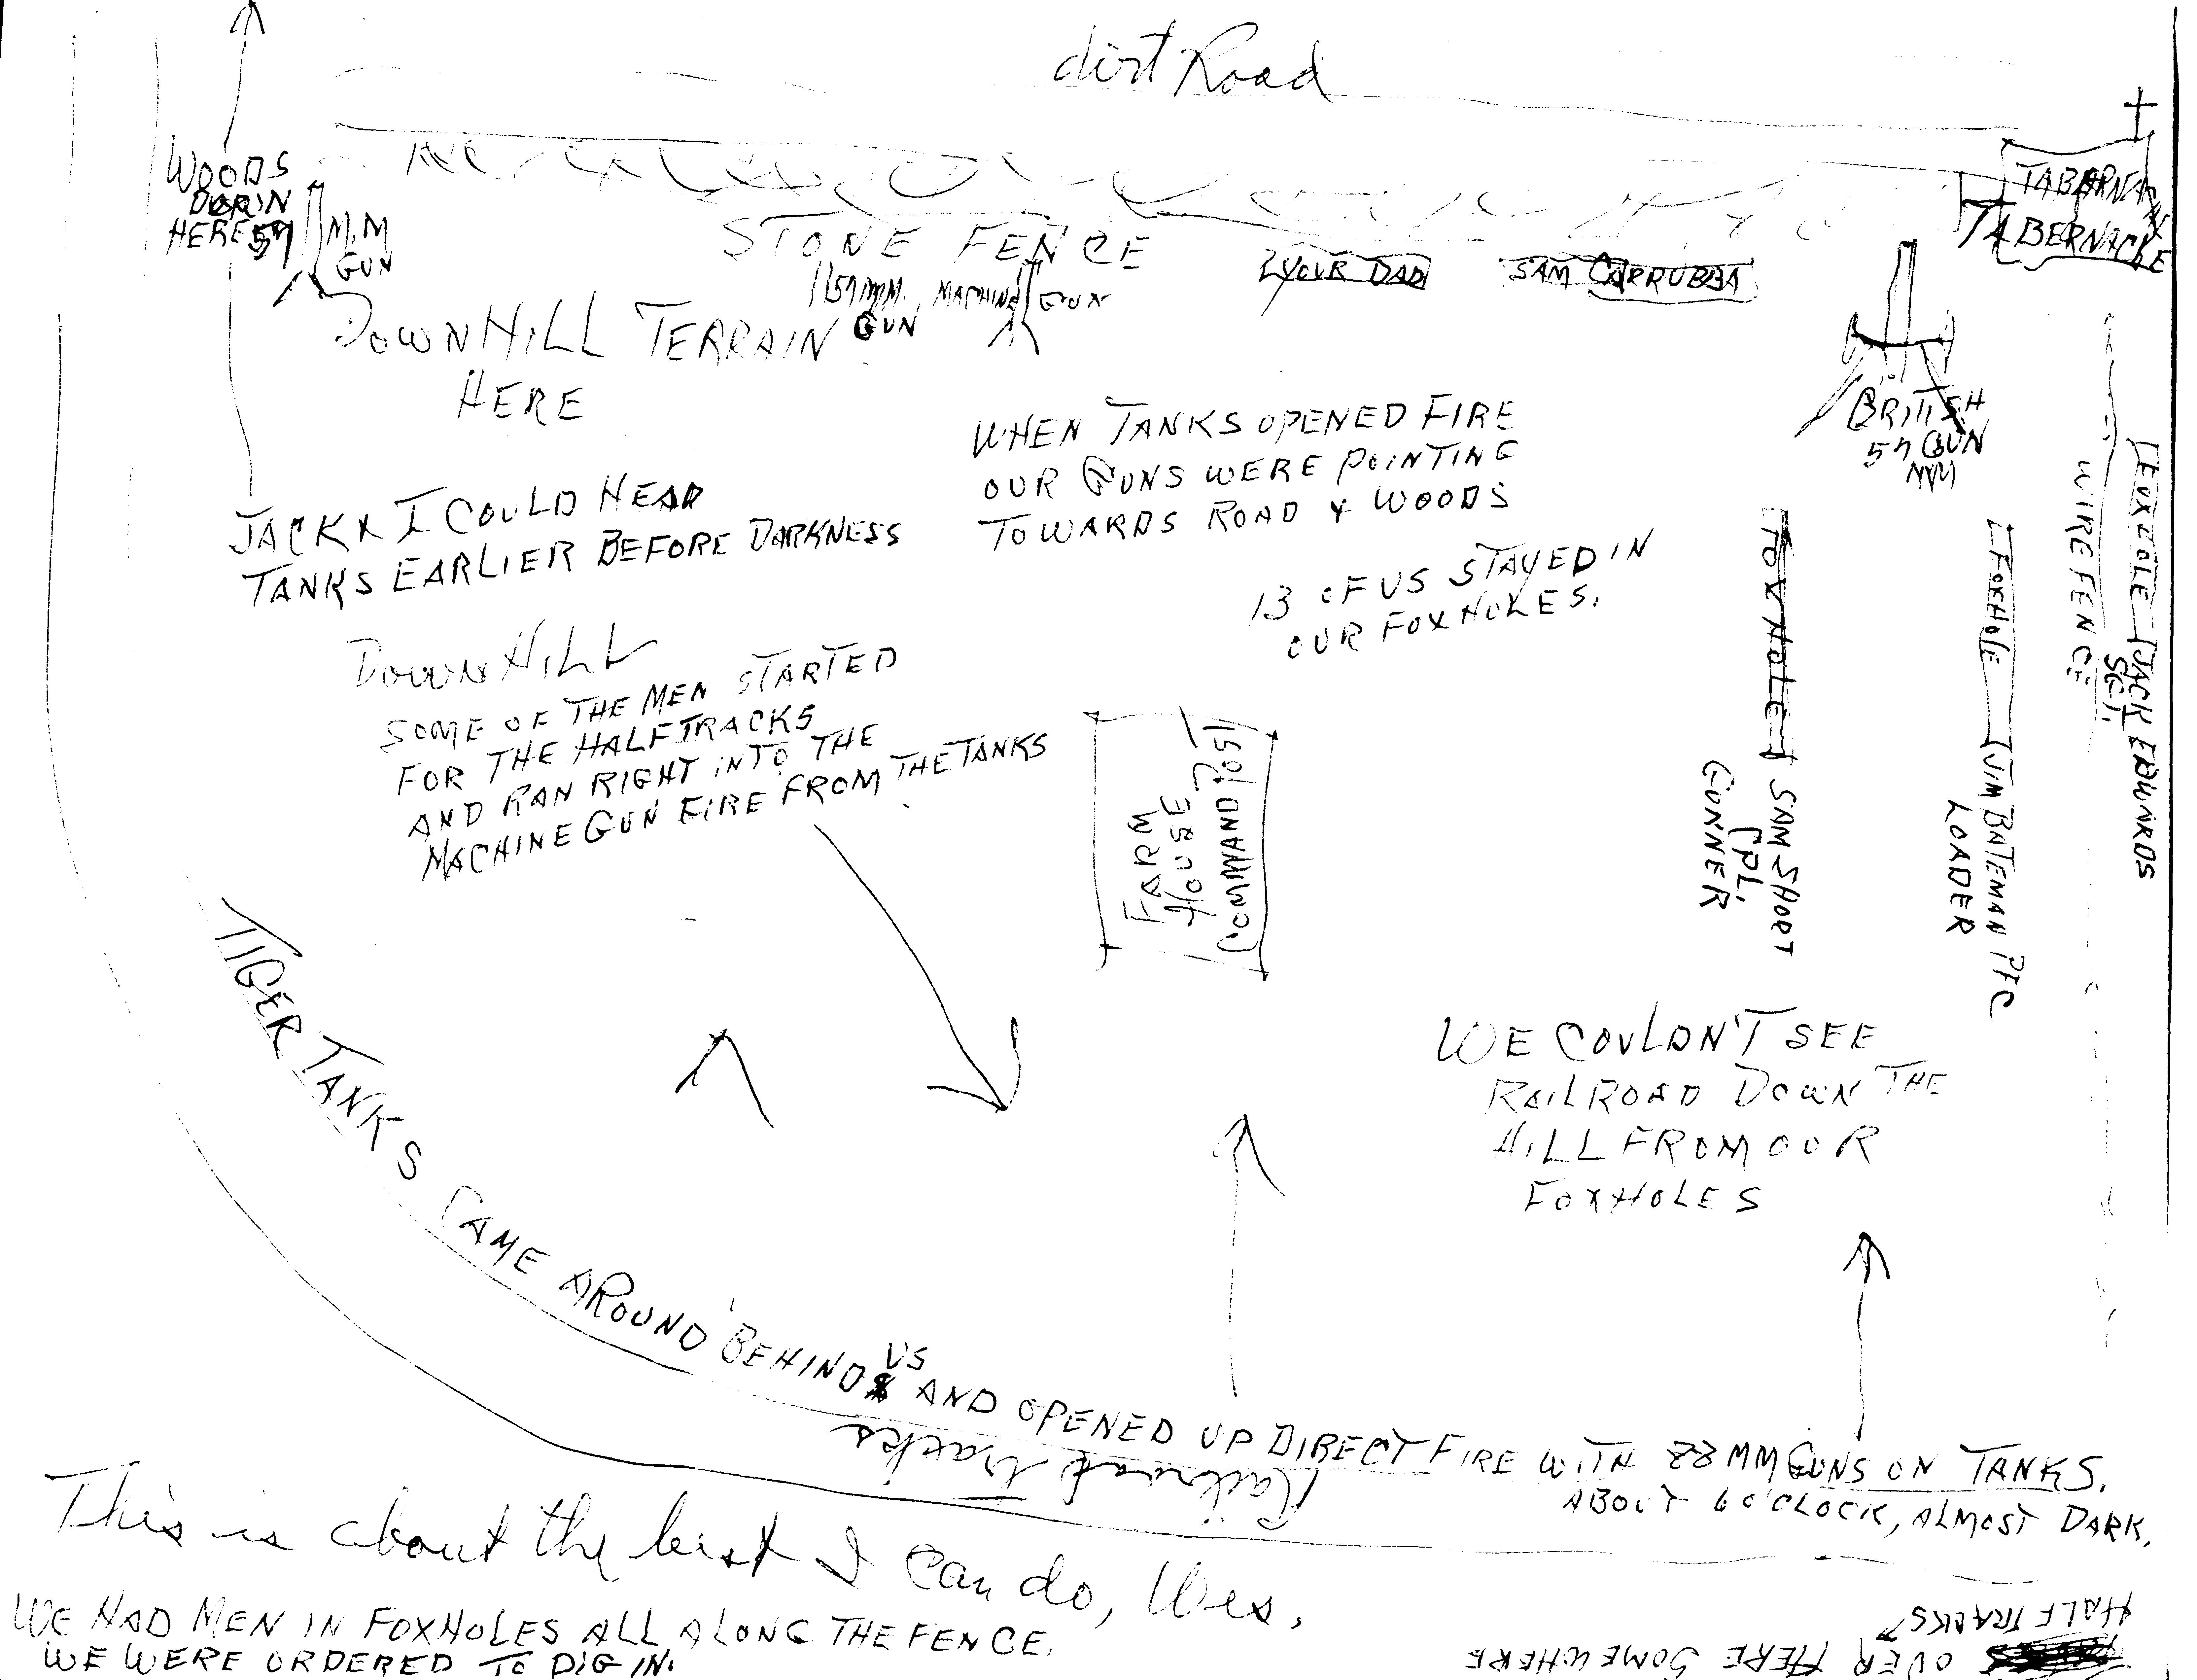 dirt Road
WOODS
DOWN
HERE 57
M.M
GUN
STONE FENCE
57 MM.
GUN
MACHINE GUN
YOUR DAD
SAM CARRUBBA
TABERNACLE
TABERNACLE
DOWNHILL TERRAIN
HERE
BRITISH
57 GUN
MM
WHEN TANKS OPENED FIRE
OUR GUNS WERE POINTING
TOWARDS ROAD & WOODS
JACK & I COULD HEAR
TANKS EARLIER BEFORE DARKNESS
13 OF US STAYED IN
OUR FOXHOLES.
DOWNHILL
SOME OF THE MEN STARTED
FOR THE HALFTRACKS
AND RAN RIGHT INTO THE
MACHINE GUN FIRE FROM THE TANKS
FARM
HOUSE
COMMAND POST
FOXHOLE SAM SHORT
CPL.
GUNNER
FOXHOLE JIM BATEMAN PFC
LOADER
WIRE FENCE
FOXHOLE JACK EDWARDS
SGT.
WE COULDN'T SEE
RAILROAD DOWN THE
HILL FROM OUR
FOXHOLES
TIGER TANKS CAME AROUND BEHIND US AND OPENED UP DIRECT FIRE WITH 88 MM GUNS ON TANKS.
ABOUT 6 O'CLOCK, ALMOST DARK.
Railroad tracks
This is about the best I can do, Wes.
WE HAD MEN IN FOXHOLES ALL ALONG THE FENCE.
WE WERE ORDERED TO DIG IN.
OVER HERE SOMEWHERE
HALFTRACKS